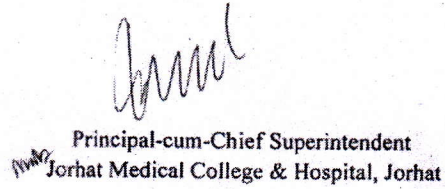 Principal-cum-Chief Superintendent
Jorhat Medical College & Hospital, Jorhat